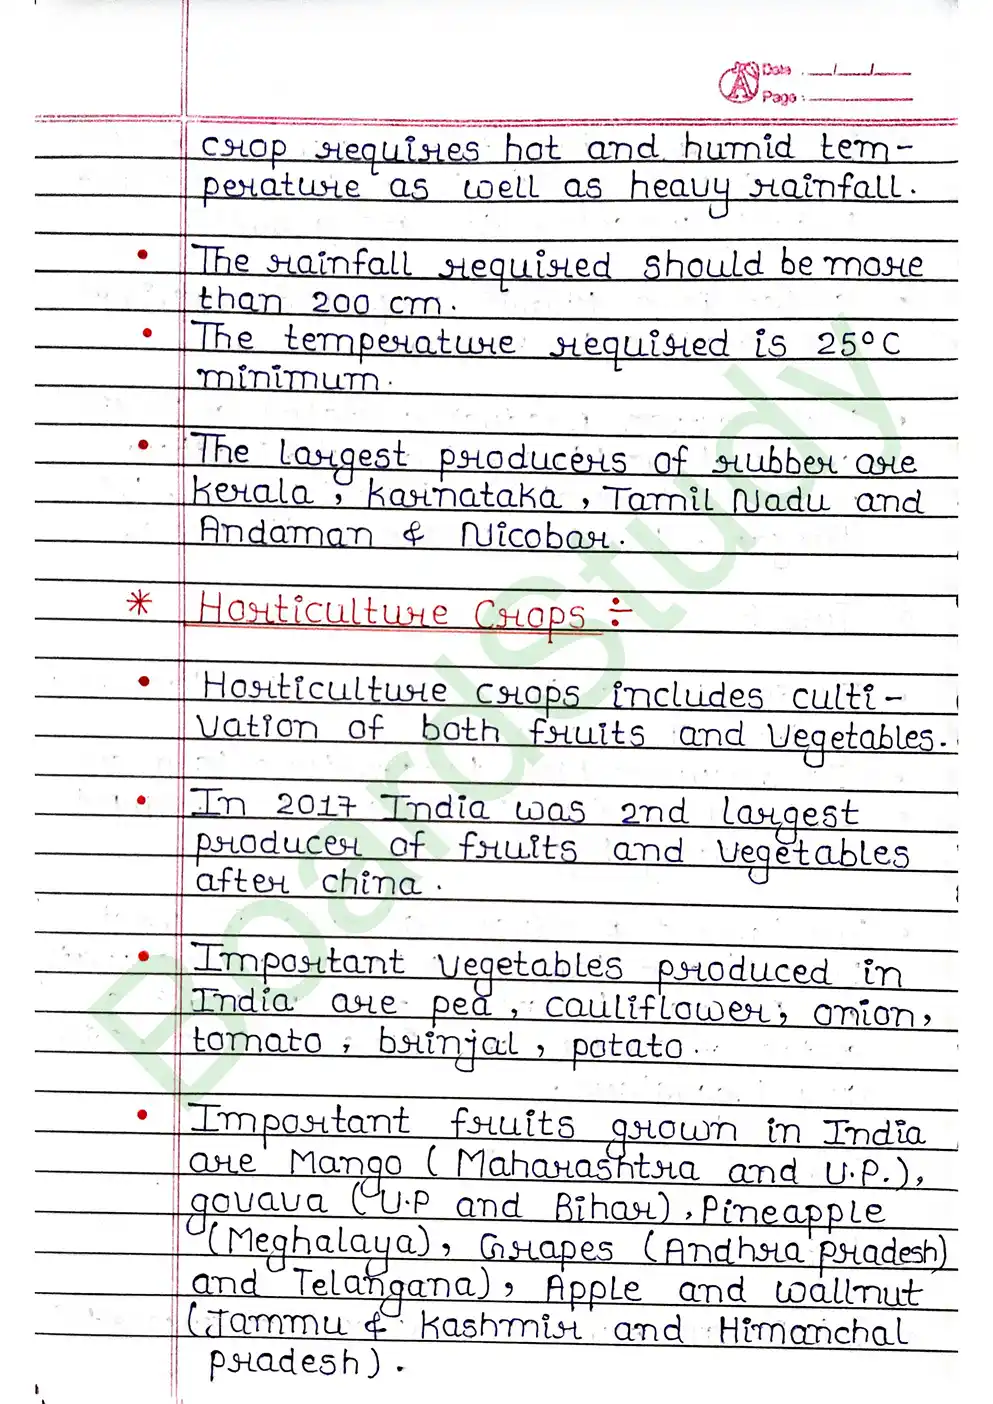 Date : __/__/__
Page :
crop requires hot and humid tem-
perature as well as heavy rainfall.
• The rainfall required should be more
than 200 cm.
• The temperature required is 25°C
minimum.
• The largest producers of rubber are
kerala, karnataka, Tamil Nadu and
Andaman & Nicobar.
* Horticulture Crops ÷
• Horticulture crops includes culti-
vation of both fruits and vegetables.
• In 2017 India was 2nd largest
producer of fruits and vegetables
after china.
• Important vegetables produced in
India are pea, cauliflower, onion,
tomato, brinjal, potato.
• Important fruits grown in India
are Mango (Maharashtra and U.P.),
govava (U.P and Bihar), Pineapple
(Meghalaya), Grapes (Andhra pradesh)
and Telangana), Apple and wallnut
(Jammu & kashmir and Himanchal
pradesh).
BoardStudy